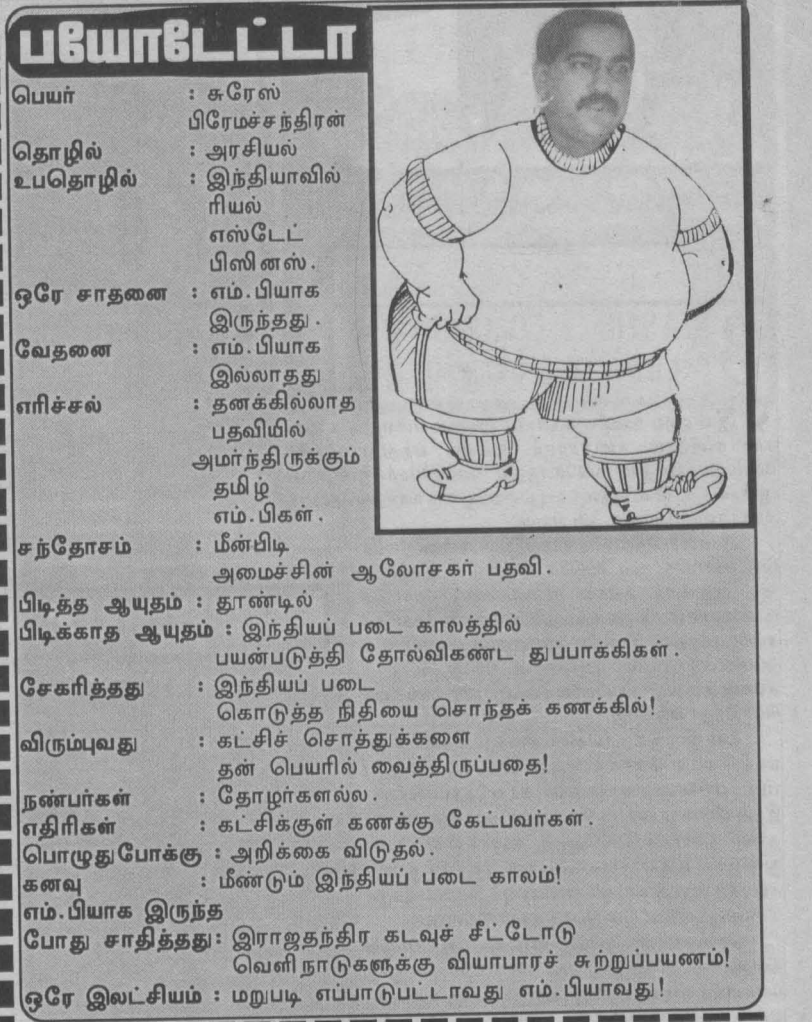 பயோடேட்டா
பெயர் : சுரேஸ்
பிரேமச்சந்திரன்
தொழில் : அரசியல்
உபதொழில் : இந்தியாவில்
ரியல்
எஸ்டேட்
பிஸினஸ்.
ஒரே சாதனை : எம்.பியாக
இருந்தது.
வேதனை : எம்.பியாக
இல்லாதது
எரிச்சல் : தனக்கில்லாத
பதவியில்
அமர்ந்திருக்கும்
தமிழ்
எம்.பிகள்.
சந்தோசம் : மீன்பிடி
அமைச்சின் ஆலோசகர் பதவி.
பிடித்த ஆயுதம் : தூண்டில்
பிடிக்காத ஆயுதம் : இந்தியப் படை காலத்தில்
பயன்படுத்தி தோல்விகண்ட துப்பாக்கிகள்.
சேகரித்தது : இந்தியப் படை
கொடுத்த நிதியை சொந்தக் கணக்கில்!
விரும்புவது : கட்சிச் சொத்துக்களை
தன் பெயரில் வைத்திருப்பதை!
நண்பர்கள் : தோழர்களல்ல.
எதிரிகள் : கட்சிக்குள் கணக்கு கேட்பவர்கள்.
பொழுதுபோக்கு : அறிக்கை விடுதல்.
கனவு : மீண்டும் இந்தியப் படை காலம்!
எம்.பியாக இருந்த
போது சாதித்தது: இராஜதந்திர கடவுச் சீட்டோடு
வெளிநாடுகளுக்கு வியாபாரச் சுற்றுப்பயணம்!
ஒரே இலட்சியம் : மறுபடி எப்பாடுபட்டாவது எம்.பியாவது!